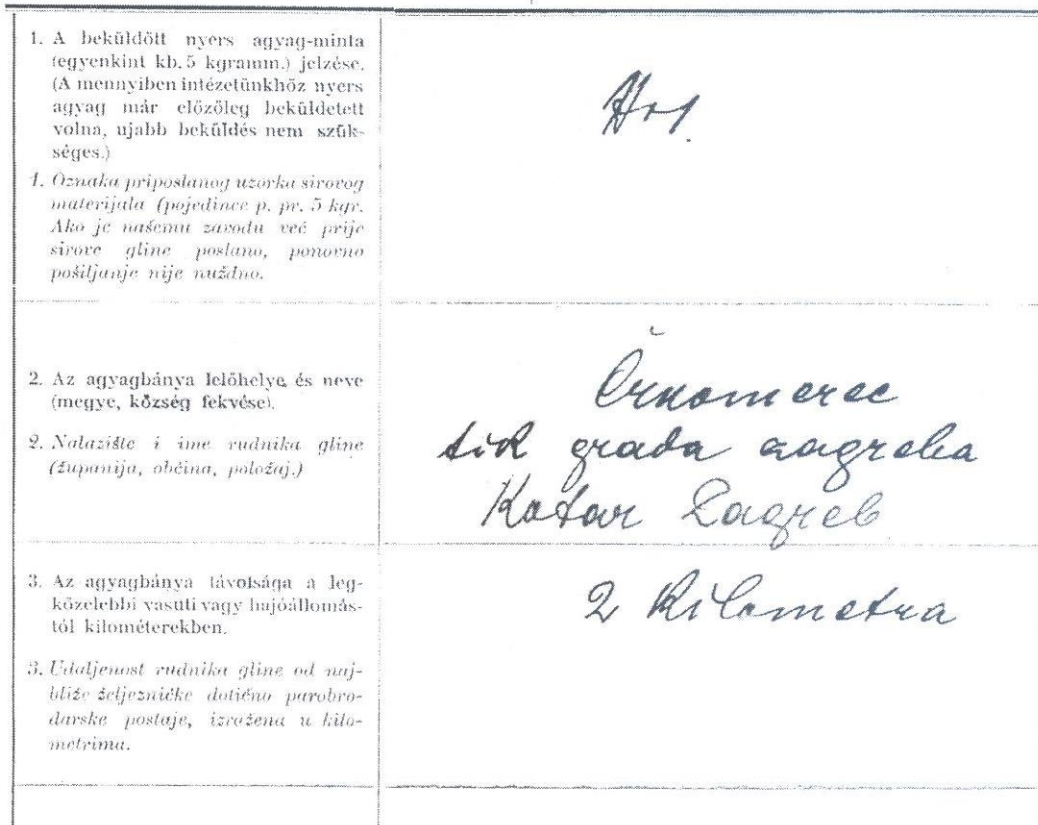 1. A beküldött nyers agyag-minta
(egyenkint kb. 5 kgramm.) jelzése.
(A mennyiben intézetünkhöz nyers
agyag már előzőleg beküldetett
volna, ujabb beküldés nem szük-
séges.)
1. Oznaka priposlanog uzorka sirovog
materijala (pojedince p. pr. 5 kgr.
Ako je našemu zavodu već prije
sirove gline poslano, ponovno
pošiljanje nije nuždno.
2. Az agyagbánya lelőhelye és neve
(megye, község fekvése).
2. Nalazište i ime rudnika gline
(županija, občina, položaj.)
Črnomerec
tik grada zagreba
Kotar Zagreb
3. Az agyagbánya távolsága a leg-
közelebbi vasúti vagy hajóállomás-
tól kilométerekben.
3. Udaljenost rudnika gline od naj-
bliže željezničke dotično parobro-
darske postaje, izražena u kilo-
metrima.
2 Kilometra